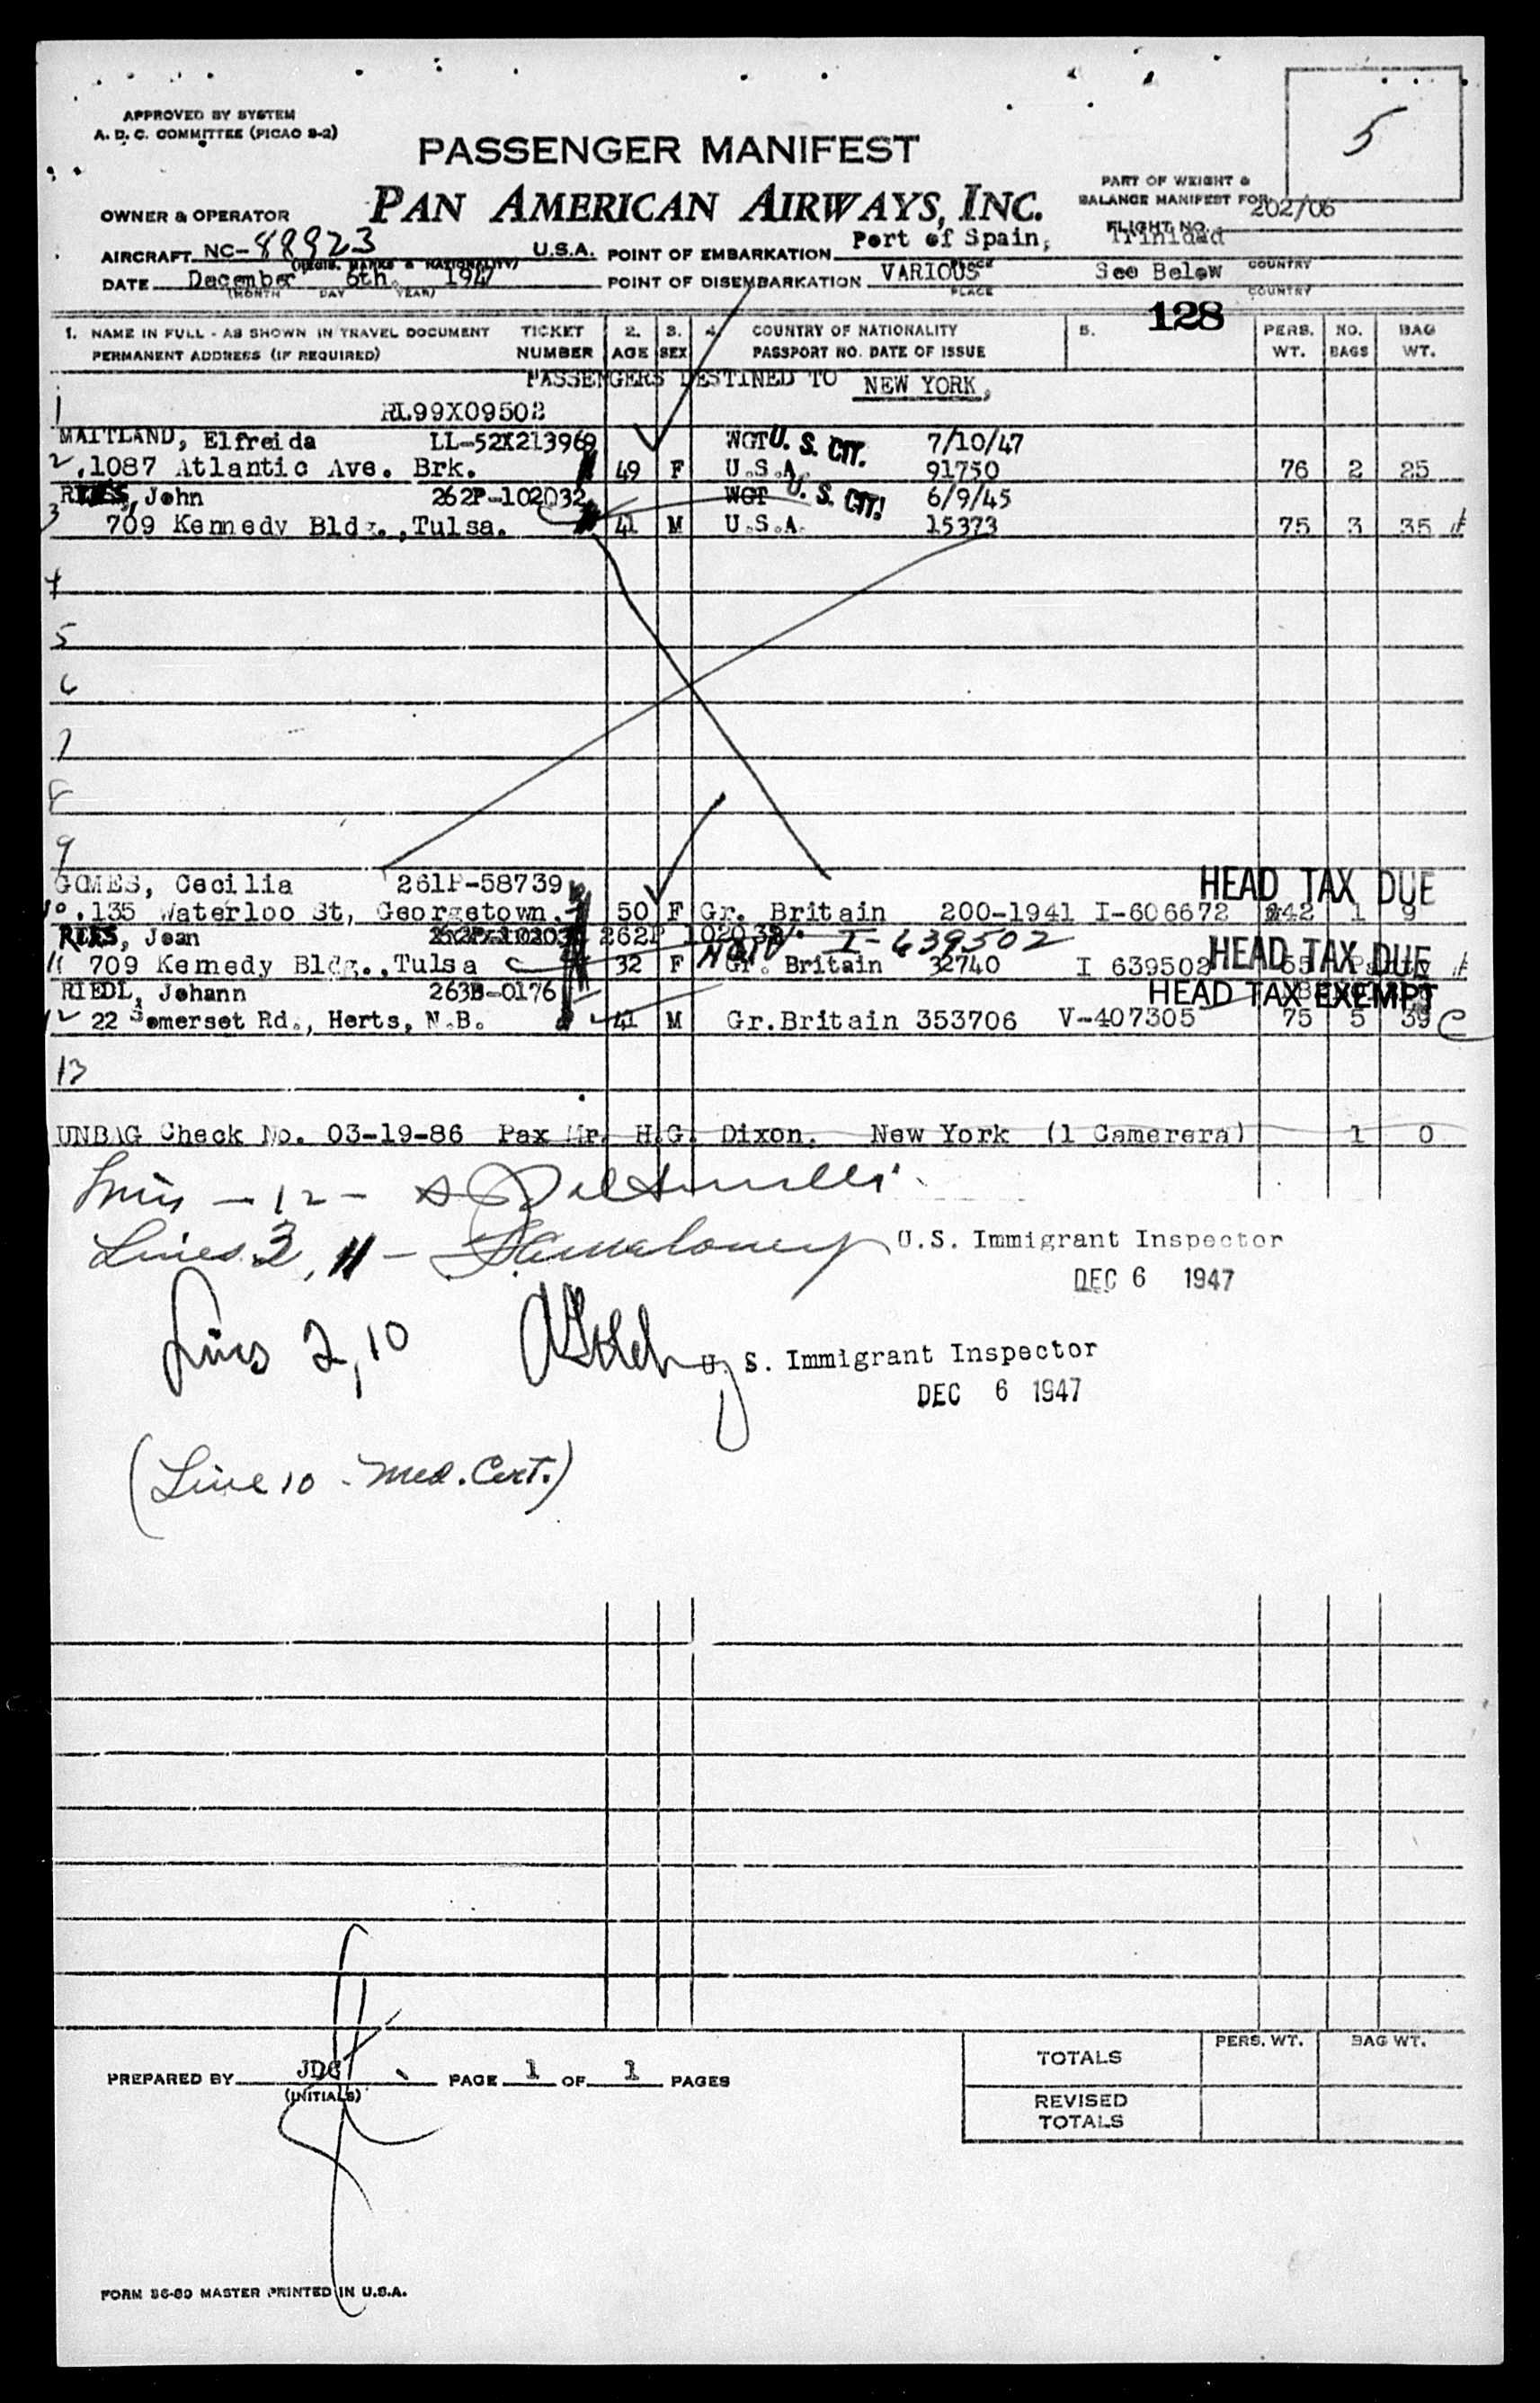 5
APPROVED BY SYSTEM
A. D. C. COMMITTEE (PICAO S-2)
PASSENGER MANIFEST
PAN AMERICAN AIRWAYS, INC.
PART OF WEIGHT &
BALANCE MANIFEST FOR
FLIGHT NO. 202/06
OWNER & OPERATOR
AIRCRAFT NC-88923 U.S.A. POINT OF EMBARKATION Port of Spain, Trinidad
(REGIS. MARKS & NATIONALITY) PLACE COUNTRY
DATE December 6th. 1947 POINT OF DISEMBARKATION VARIOUS See Below
(MONTH DAY YEAR) PLACE COUNTRY
128
1. NAME IN FULL - AS SHOWN IN TRAVEL DOCUMENT TICKET 2. 3. 4. COUNTRY OF NATIONALITY 5. PERS. NO. BAG
PERMANENT ADDRESS (IF REQUIRED) NUMBER AGE SEX PASSPORT NO. DATE OF ISSUE WT. BAGS WT.
PASSENGERS DESTINED TO NEW YORK,
1 RL99X09502
MAITLAND, Elfreida LL-52X213969 WGT U. S. CIT. 7/10/47
2 1087 Atlantic Ave. Brk. 49 F U.S.A. 91750 76 2 25
John 262P-102032 WGT U. S. CIT. 6/9/45
3 709 Kennedy Bldg., Tulsa. 41 M U.S.A. 15373 75 3 35
4
5
6
7
8
9
GOMES, Cecilia 261P-58739 HEAD TAX DUE
10. 135 Waterloo St, Georgetown. 50 F Gr. Britain 200-1941 I-606672 142 1 9
Jean 262P 102032 I-639502
11 709 Kemedy Bldg., Tulsa 32 F Gr. Britain 32740 I 639502 HEAD TAX DUE
RIEDL, Johann 263B-0176 HEAD TAX EXEMPT
12 22 Somerset Rd., Herts, N.B. 41 M Gr.Britain 353706 V-407305 75 5 39 C
13
UNBAG Check No. 03-19-86 Pax Mr. H.G. Dixon. New York (1 Camerera) 1 0
- 12 -
Lines 3, 11 - U.S. Immigrant Inspector
DEC 6 1947
Lines 2, 10 U. S. Immigrant Inspector
DEC 6 1947
(Line 10 - Med. Cert.)
PREPARED BY JDG PAGE 1 OF 1 PAGES
(INITIALS)
PERS. WT. BAG WT.
TOTALS
REVISED
TOTALS
FORM 36-80 MASTER PRINTED IN U.S.A.